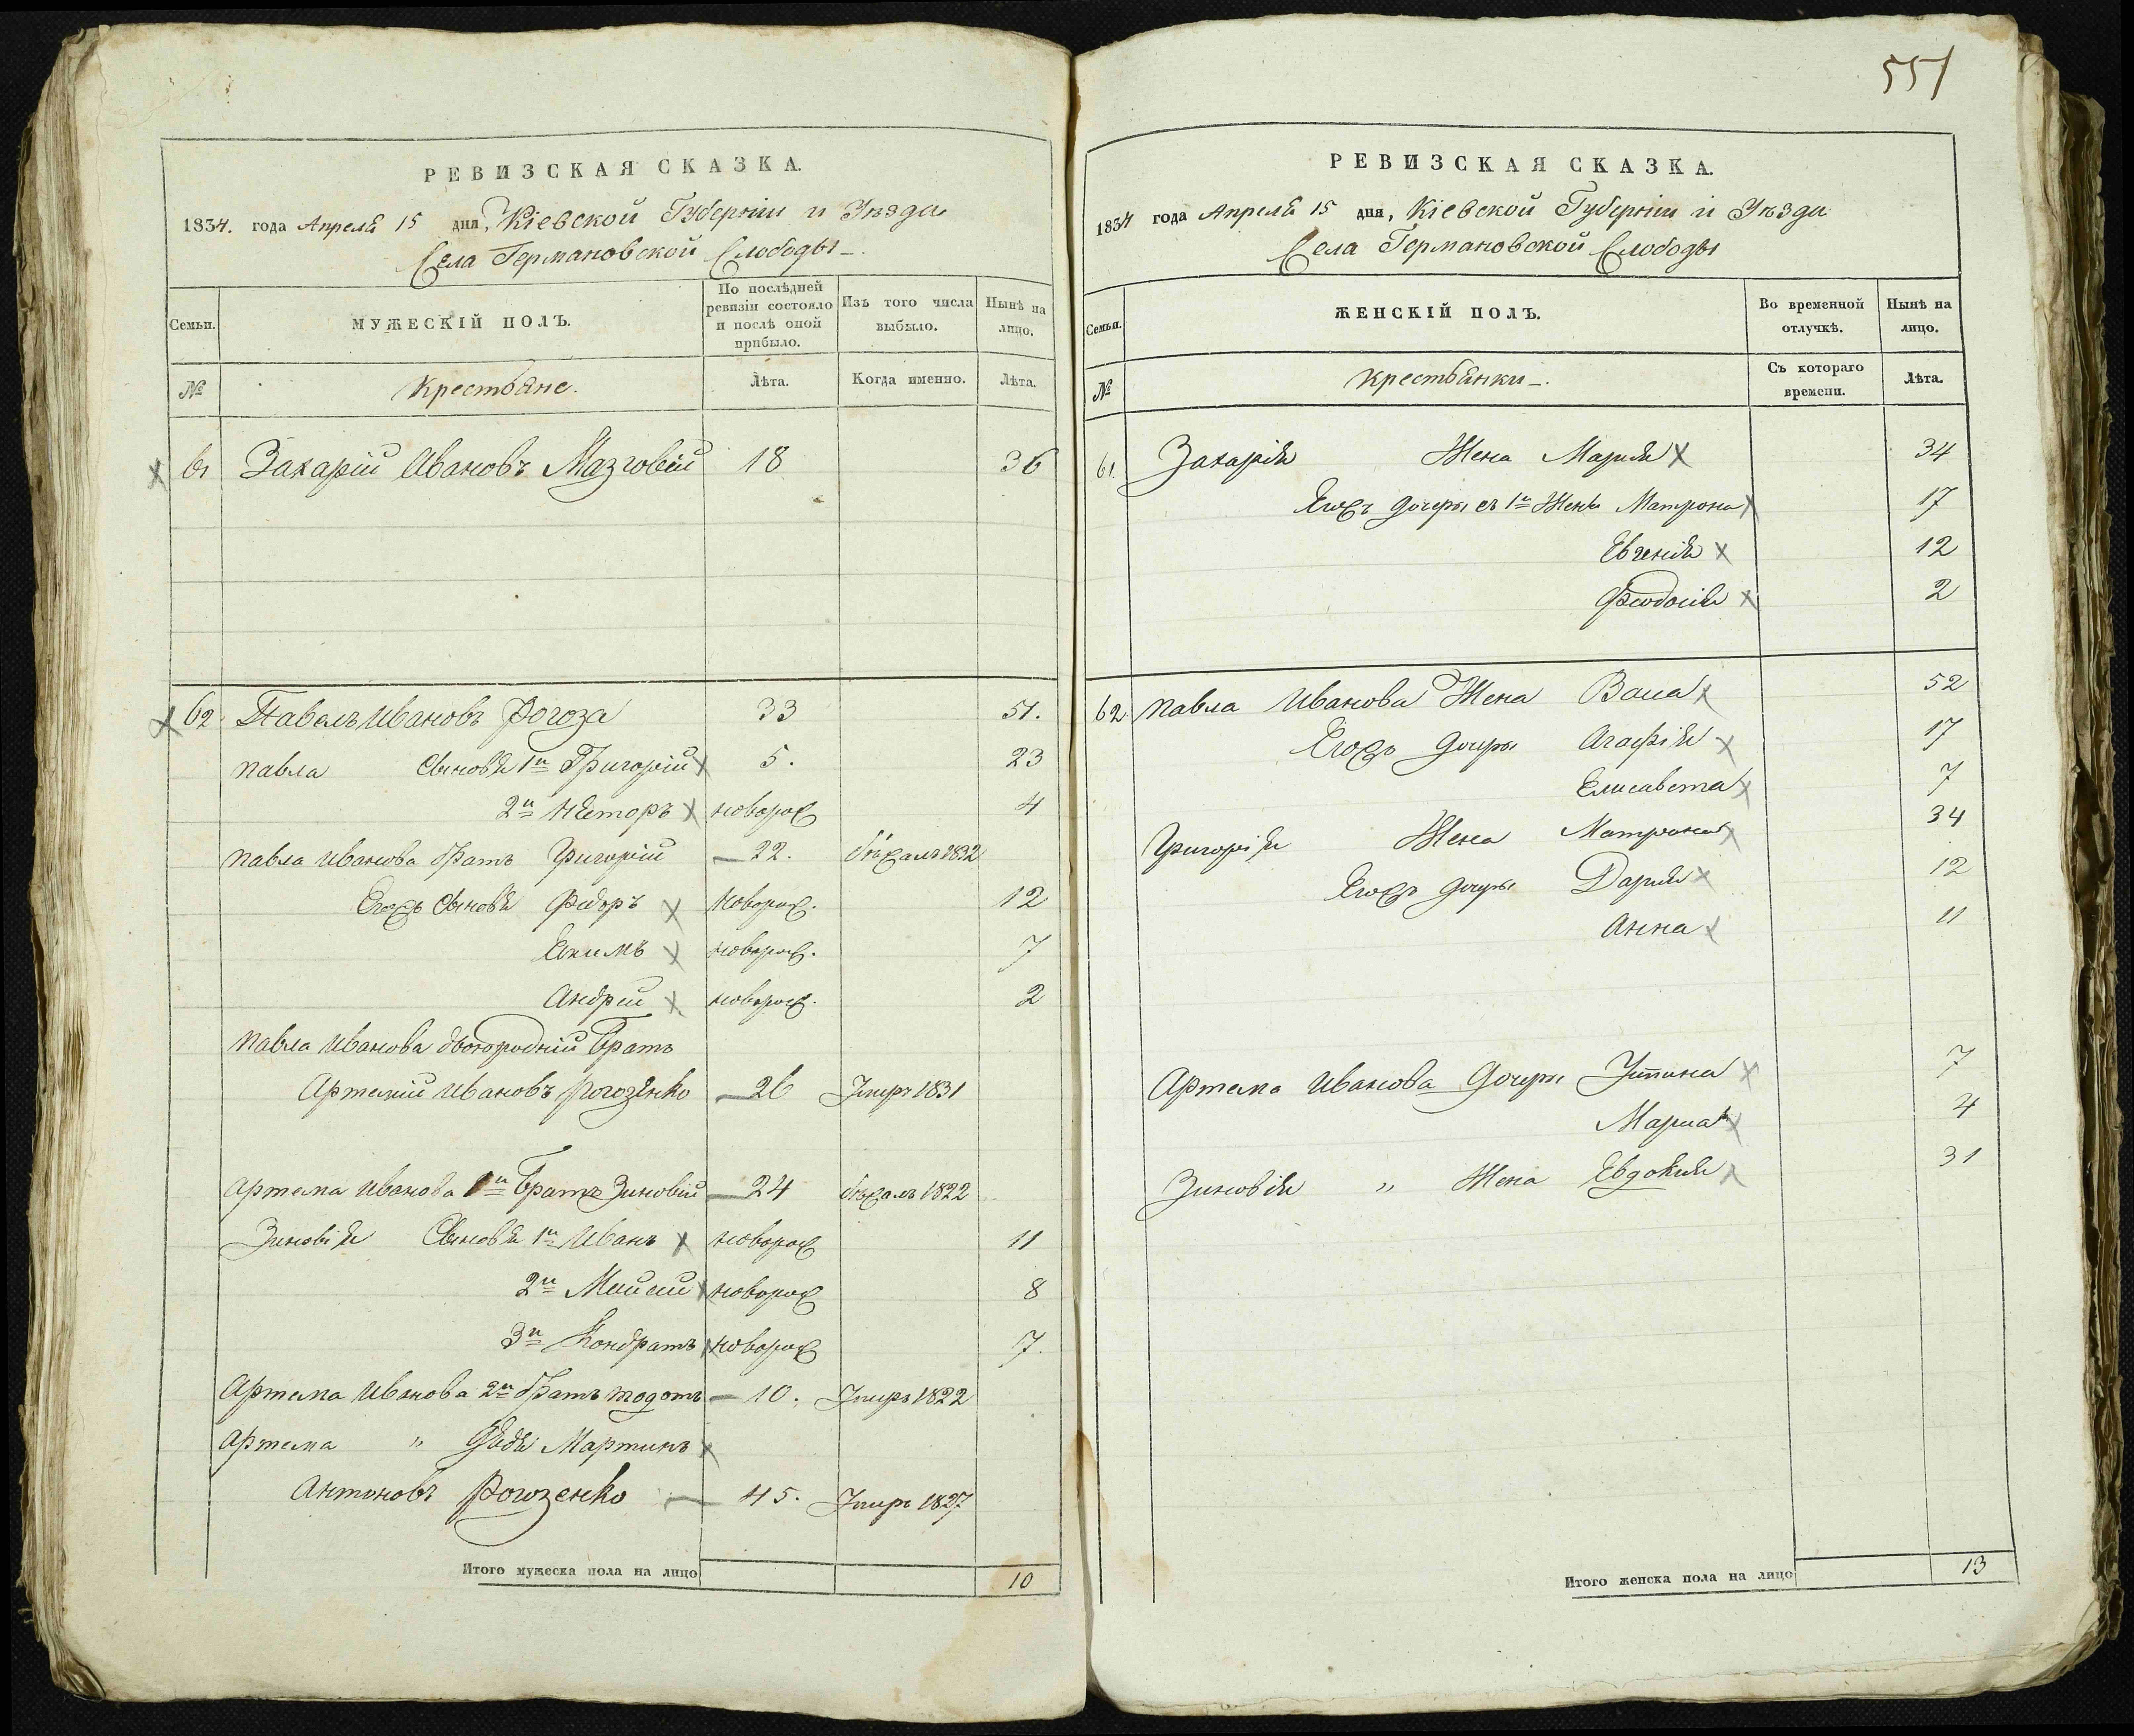 551
РЕВИЗСКАЯ СКАЗКА.
1834. года Апреля 15 дня, Кіевской Губерніи и Уезда
Села Германовской Слободы
Семьи.
МУЖЕСКІЙ ПОЛЪ.
По послѣдней ревизіи состояло и послѣ оной прибыло.
Изъ того числа выбыло.
Нынѣ на лицо.
№ Крестьяне. Лѣта. Когда именно. Лѣта.
61 Захарій Ивановъ Мазговій 18 36
62 Павелъ Ивановъ Рогоза 33 51.
Павла Сыновья 1й Григорій 5. 23
2й Нестор новорож 4
Павла Иванова братъ Григорій 22. 1832
Егожъ Сыновья Федоръ Новорож. 12
Екимъ новорож. 7
Андрей новорож. 2
Павла Иванова двоюродній Братъ
Артемій Ивановъ Рогозенко 26 Умеръ 1831
Артема Иванова 1й Братъ Зиновій 24 бежалъ 1822
Зиновія Сыновья 1й Иванъ новорож 11
2й новорож 8
3й Кондратъ новорож 7.
Артема Иванова 2й братъ Тодотъ 10. Умеръ 1822
Артема " Дядя Мартинъ
Антоновъ Рогозенко 45. Умеръ 1827
Итого мужеска пола на лицо 10
РЕВИЗСКАЯ СКАЗКА.
1834 года Апреля 15 дня, Кіевской Губерніи и Уезда
Села Германовской Слободы
Семьи.
ЖЕНСКІЙ ПОЛЪ.
Во временной отлучкѣ.
Нынѣ на лицо.
№ Крестьянки Съ котораго времени. Лѣта.
61. Захарія Жена Марія 34
Егожъ дочери съ 1й Жены Матрона 17
Евгенія 12
Феодосія 2
62 Павла Иванова Жена Васа 52
Егожъ дочери Агафія 17
Елисавета 7
Григорія Жена Матрона 34
Егожъ дочери Дарія 12
Анна 11
Артема Иванова Дочери Устина 7
Мариа 4
Зиновія " Жена Евдокия 31
Итого женска пола на лицо 13